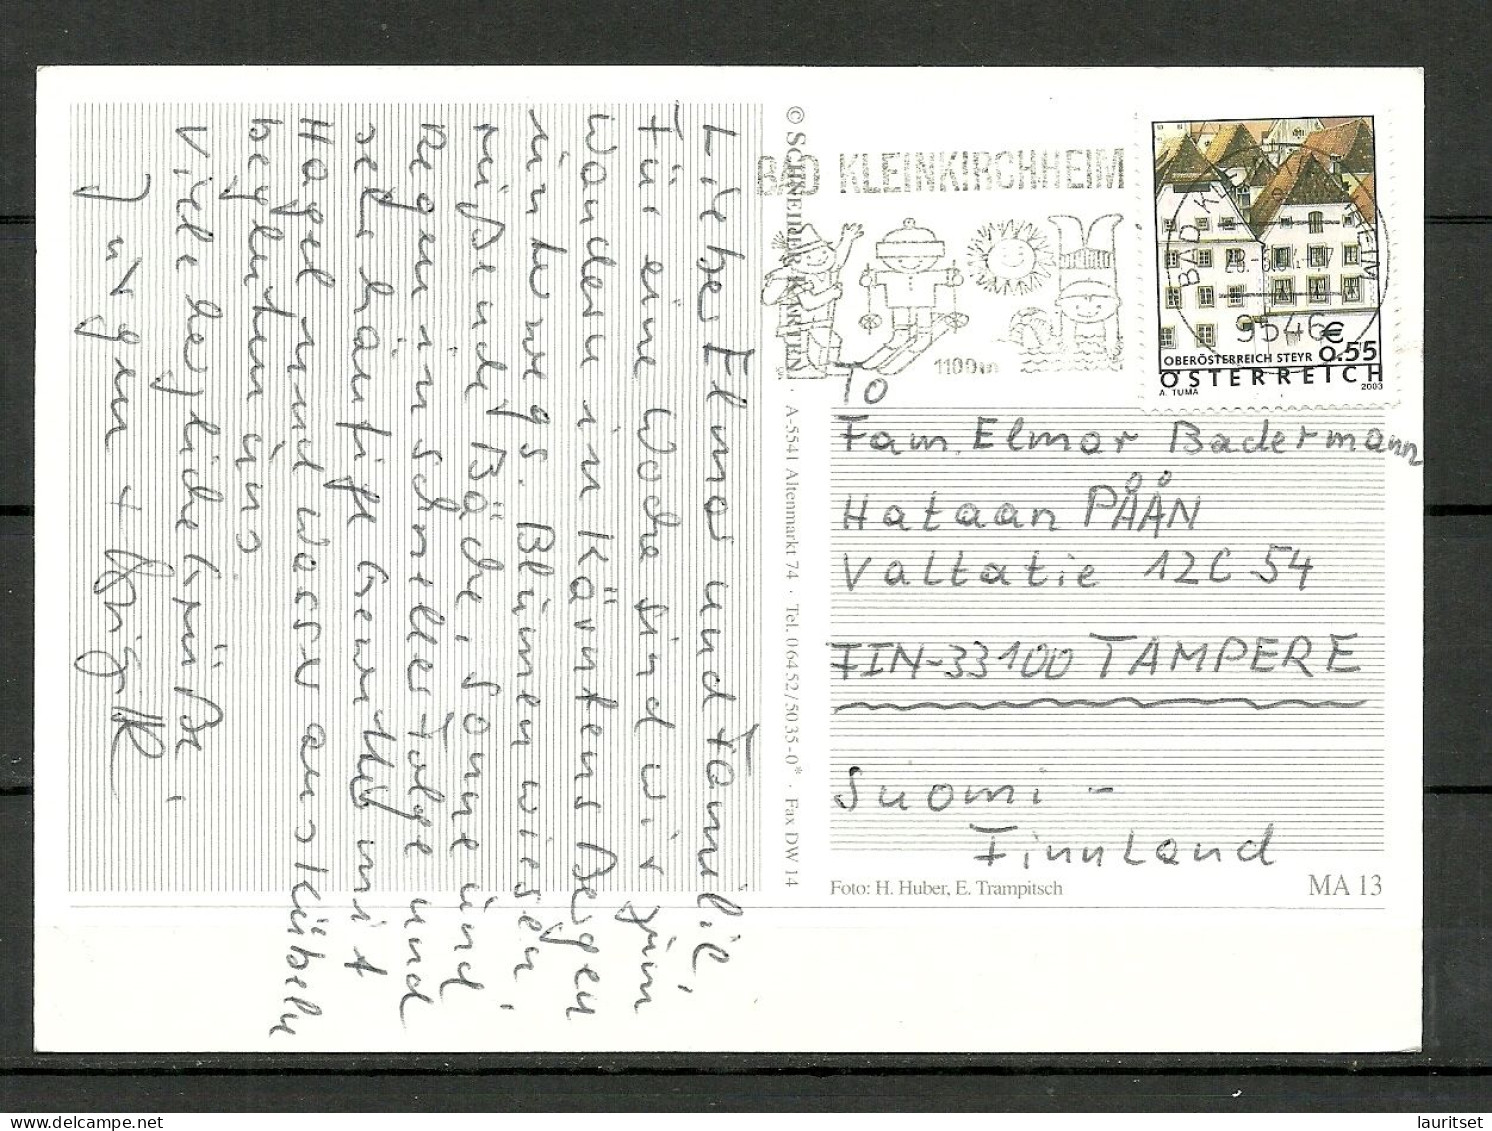 Lieber Elmar und Familie,
Für eine Woche sind wir zum
Wandern in Kärntens Bergen
unterwegs. Blumenwiesen,
reißende Bäche, Sonne und
Regen in schneller Folge und
sehr häufig Gewitter mit
Hagel und Wasser aus Kübeln
begleiten uns.
Viele herzliche Grüße
Jürgen +
© SCHREINER KARTEN · A-5541 Altenmarkt 74 · Tel. 06452/5035-0* · Fax DW 14
BAD KLEINKIRCHHEIM
1100m
BAD KLEINKIRCHHEIM
9546
€ 0.55
OBERÖSTERREICH STEYR
ÖSTERREICH
A. TUMA 2003
To
Fam. Elmar Badermann
Hataan PÅÅN
Valtatie 12C 54
FIN-33100 TAMPERE
Suomi -
Finnland
Foto: H. Huber, E. Trampitsch
MA 13
lauritset
www.delcampe.net